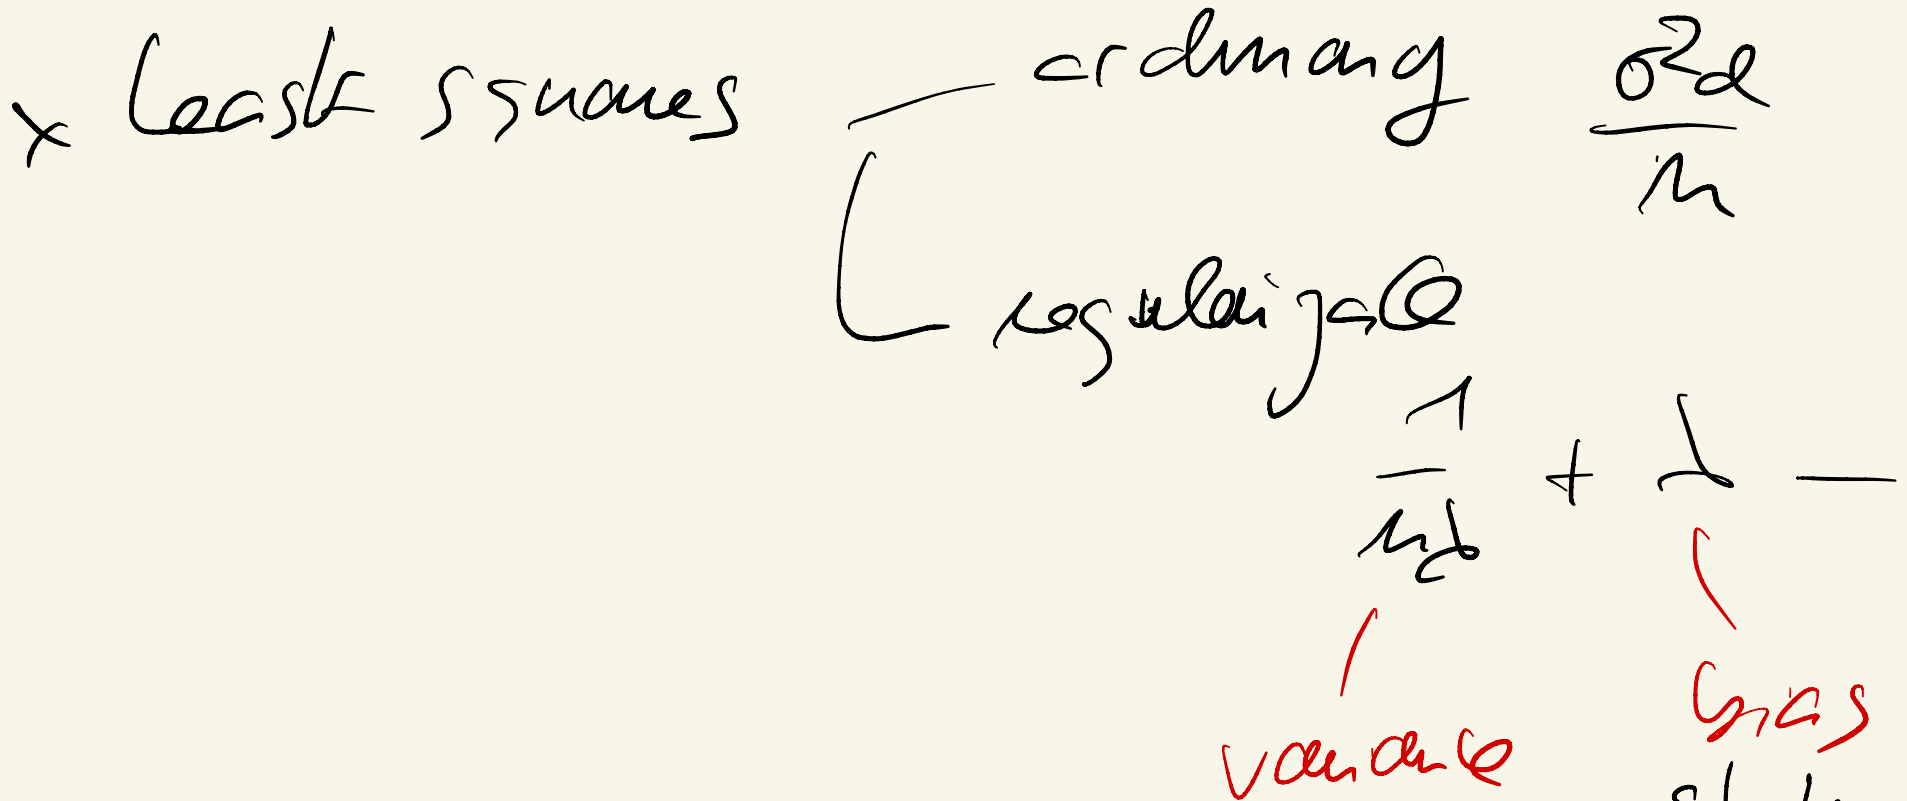 x Least squares — ordinary σ²d/n
regularized
1/(nλ) + λ —
variance bias